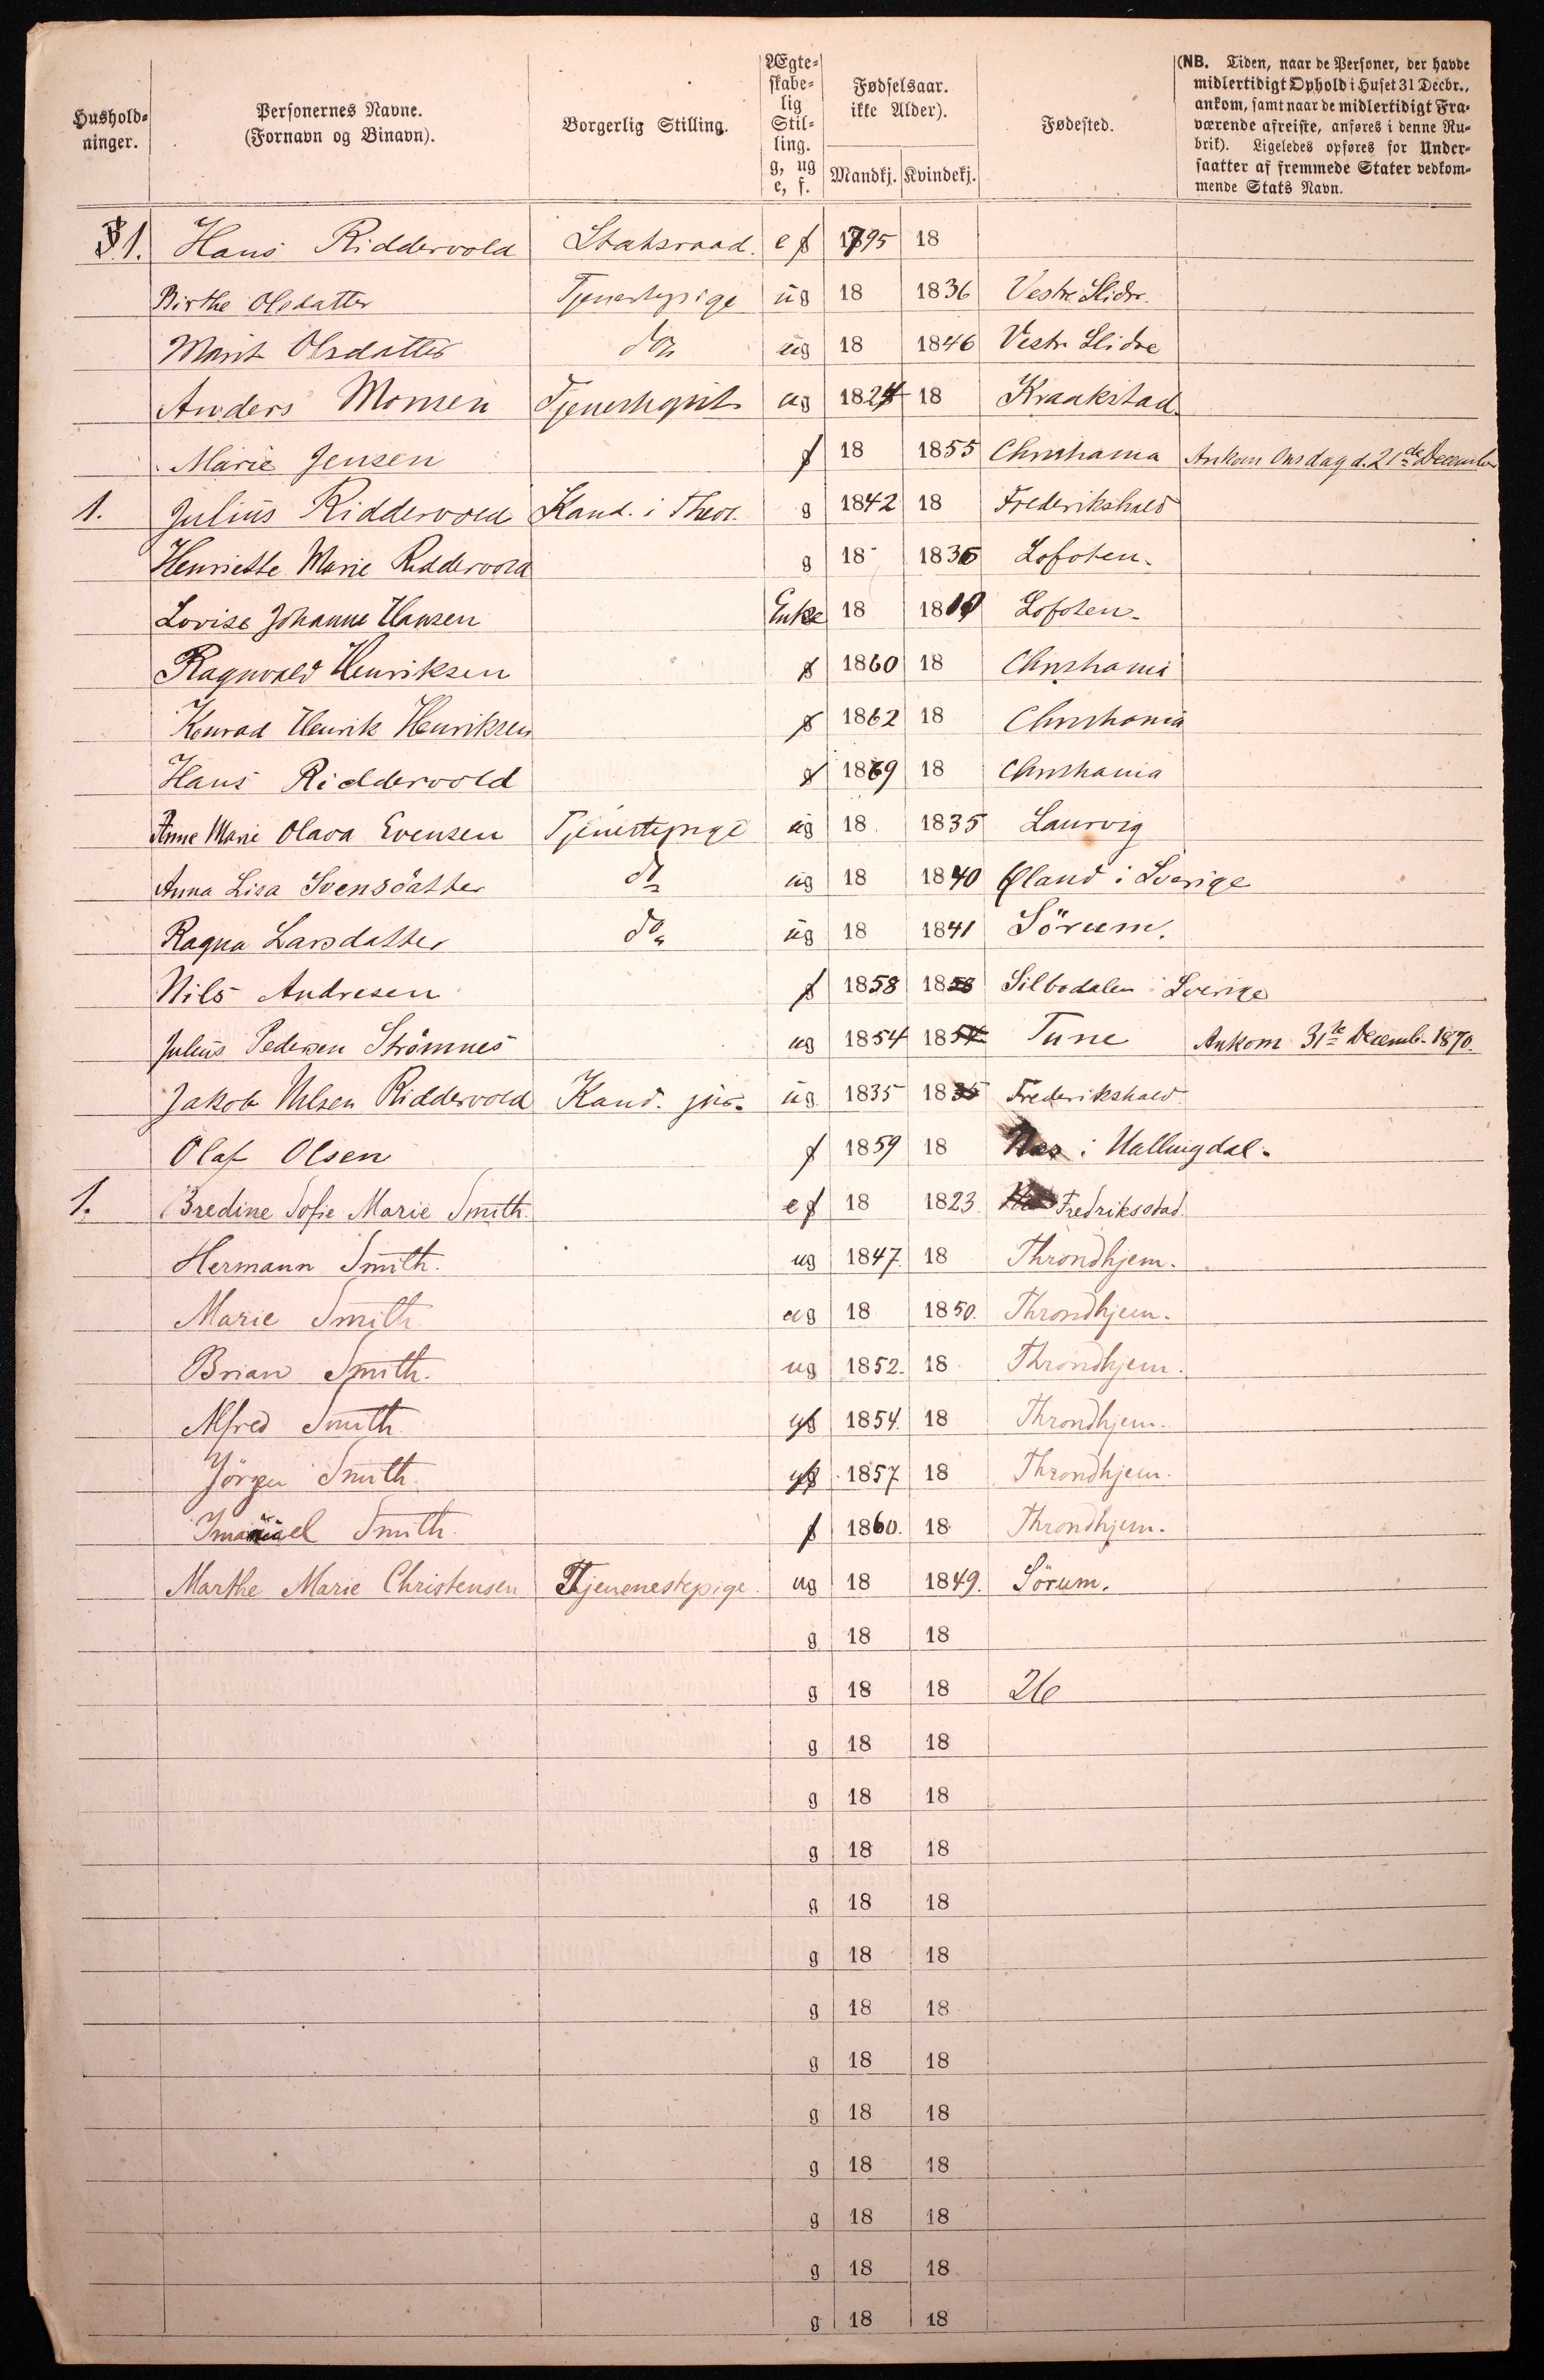 Hushold-
ninger.
Personernes Navne.
(Fornavn og Binavn).
Borgerlig Stilling.
Ægte-
skabe-
lig
Stil-
ling.
g, ug
e, f.
Fødselsaar.
ikke Alder).
Mandkj. Kvindekj.
Fødested.
(NB. Tiden, naar de Personer, der havde
midlertidigt Ophold i Huset 31 Decbr.,
ankom, samt naar de midlertidigt Fra-
værende afreiste, anføres i denne Ru-
brik). Ligeledes opføres for Under-
saatter af fremmede Stater vedkom-
mende Stats Navn.
1. Hans Riddervold Statsraad. e f 1795 18
Birthe Olsdatter Tjenestepige ug 18 1836 Vestre Slidre.
Marit Olsdatter do ug 18 1846 Vestre Slidre
Anders Monsen ug 1824 18 Kraakstad.
Marie Jensen f 18 1855 Christiania Ankom Onsdag d. 21de December
1. Julius Riddervold Kand. i Theol. g 1842 18 Frederikshald
Henriette Marie Riddervold g 18 1836 Lofoten.
Lovise Johanne Hansen Enke 18 18 Lofoten.
Ragnvald Henriksen 1860 18 Christiania
Konrad Henrik Henriksen 1862 18 Christiania
Hans Riddervold 1869 18 Christiania
Anne Marie Olava Evensen Tjenestepige ug 18 1835 Laurvig
Anna Lisa Svensdatter do ug 18 1840 Øland i Sverige
Ragna Larsdatter do ug 18 1841 Sörum.
Nils Andresen f 1858 1858 Silbodalen Sverige
Julius Pedersen Strömnes ug 1854 1854 Tune Ankom 31te Decemb. 1870.
Jakob Nilsen Riddervold Kand. jur. ug 1835 1835 Frederikshald
Olaf Olsen f 1859 18 Næs i Hallingdal.
1. Bredine Sofie Marie Smith. e f 18 1823 Fredriksstad.
Hermann Smith. ug 1847. 18 Throndhjem.
Marie Smith ug 18 1850. Throndhjem.
Brian Smith. ug 1852. 18 Throndhjem.
Alfred Smith. 1854. 18 Throndhjem.
Jörgen Smith. 1857 18 Throndhjem.
Smith. f 1860. 18 Throndhjem.
Marthe Marie Christensen Tjenenestepige. ug 18 1849. Sörum.
g 18 18
g 18 18 26
g 18 18
g 18 18
g 18 18
g 18 18
g 18 18
g 18 18
g 18 18
g 18 18
g 18 18
g 18 18
g 18 18
g 18 18